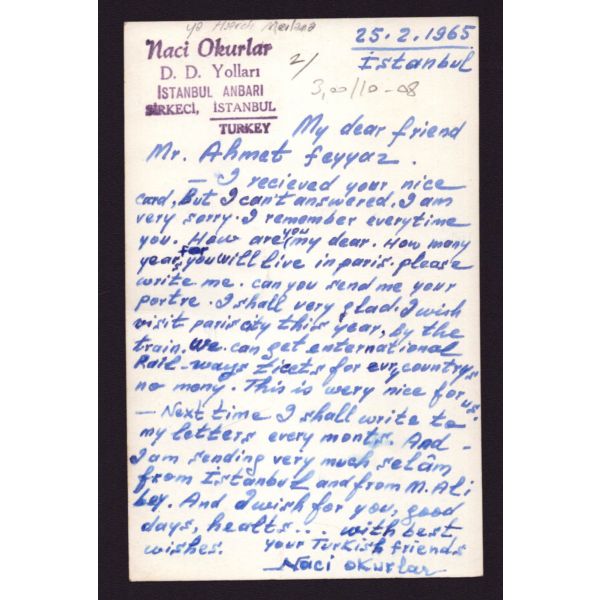 Naci Okurlar
D. D. Yolları
İSTANBUL ANBARI
SİRKECİ, İSTANBUL
TURKEY
2/
25.2.1965
İstanbul
My dear friend
Mr. Ahmet feyyaz.
— I recieved your nice
card, But I can't answered. I am
very sorry. I remember everytime
you. How are you my dear. How many
years for you will live in paris. please
write me. can you send me your
portre. I shall very glad. I wish
visit paris city this year, by the
train. We can get enternational
Rail-ways ticets for evry countrys
no mony. This is wery nice for us.
— Next time I shall write to
my letters every monts. And -
I am sending very much selâm
from İstanbul and from M. Ali
bey. And I wish for you, good
days, healts... with best
wishes. your Turkish friends
Naci Okurlar